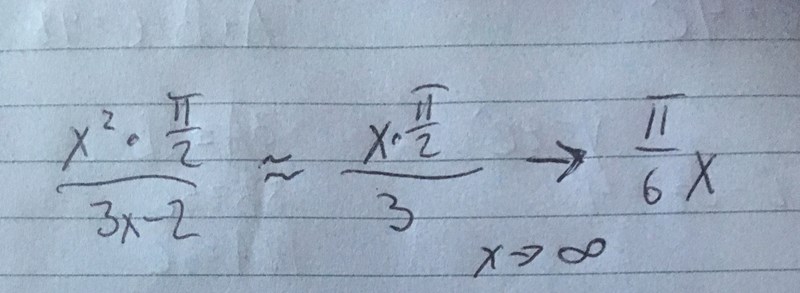 x² · π/2 / 3x-2 ≈ x · π/2 / 3 → π/6 x
x → ∞